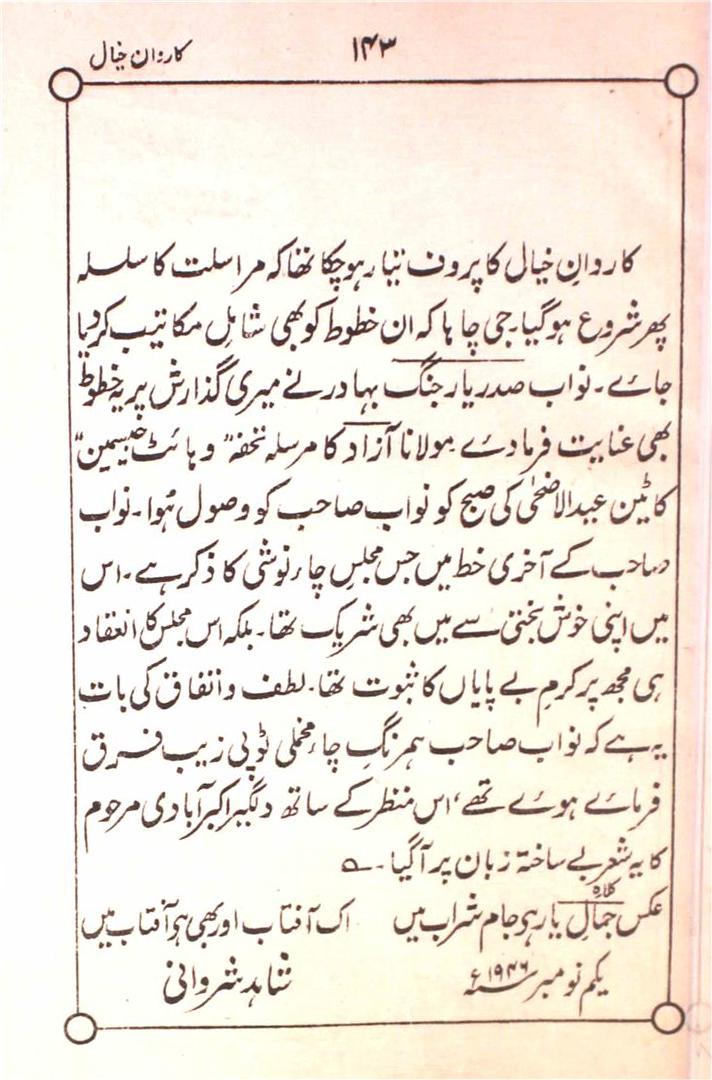 ۱۴۳
کاروان خیال
کاروانِ خیال کا پروف تیار ہوچکا تھا کہ مراسلت کا سلسلہ
پھر شروع ہوگیا۔ جی چاہا کہ ان خطوط کو بھی شاملِ مکاتیب کردیا
جائے۔ نواب صدر یار جنگ بہادر نے میری گذارش پر یہ خطوط
بھی عنایت فرمادے۔ مولانا آزاد کا مرسلہ تحفہ "وہائٹ جیسمین"
کا ٹین عید الاضحٰی کی صبح کو نواب صاحب کو وصول ہُوا۔ نواب
صاحب کے آخری خط میں جس مجلسِ چاء نوشی کا ذکر ہے۔ اس
میں اپنی خوش بختی سے میں بھی شریک تھا۔ بلکہ اس مجلس کا انعقاد
ہی مجھ پر کرمِ بے پایاں کا ثبوت تھا۔ لطف و اتفاق کی بات
یہ ہے کہ نواب صاحب ہمرنگِ چاء مخملی ٹوپی زیب فرق
فرمائے ہوئے تھے، اس منظر کے ساتھ دلگیر اکبر آبادی مرحوم
کا یہ شعر بے ساختہ زبان پر آگیا۔ ؎
کلاہ
عکس جمالِ یار ہو جام شراب میں اک آفتاب اور بھی ہو آفتاب میں
یکم نومبر سنہ ۱۹۴۶ء شاہد شروانی